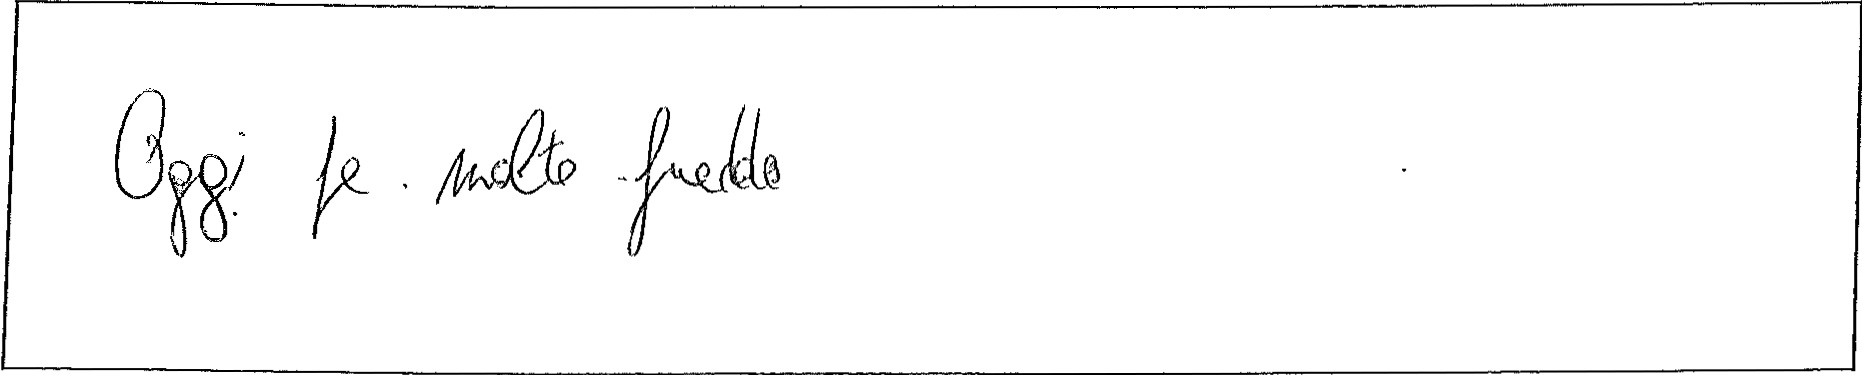 Oggi fa molto freddo